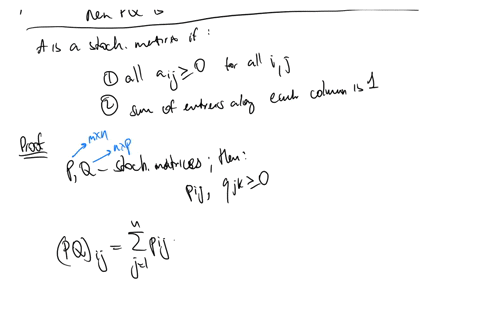 A is a stoch. matrix if :
① all aij ≥ 0 for all i, j
② sum of entries along each column is 1
Proof
m×n n×p
P, Q - stoch. matrices ; then :
pij, qjk ≥ 0
(PQ)ij = n∑j=1 pij